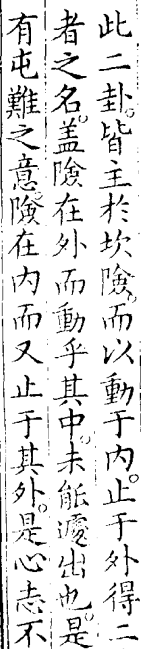 此二卦。皆主於坎險。而以動于内。止于外得二
者之名。蓋險在外而動乎其中。未能遽出也。是
有屯難之意。險在内而又止于其外。是心志不